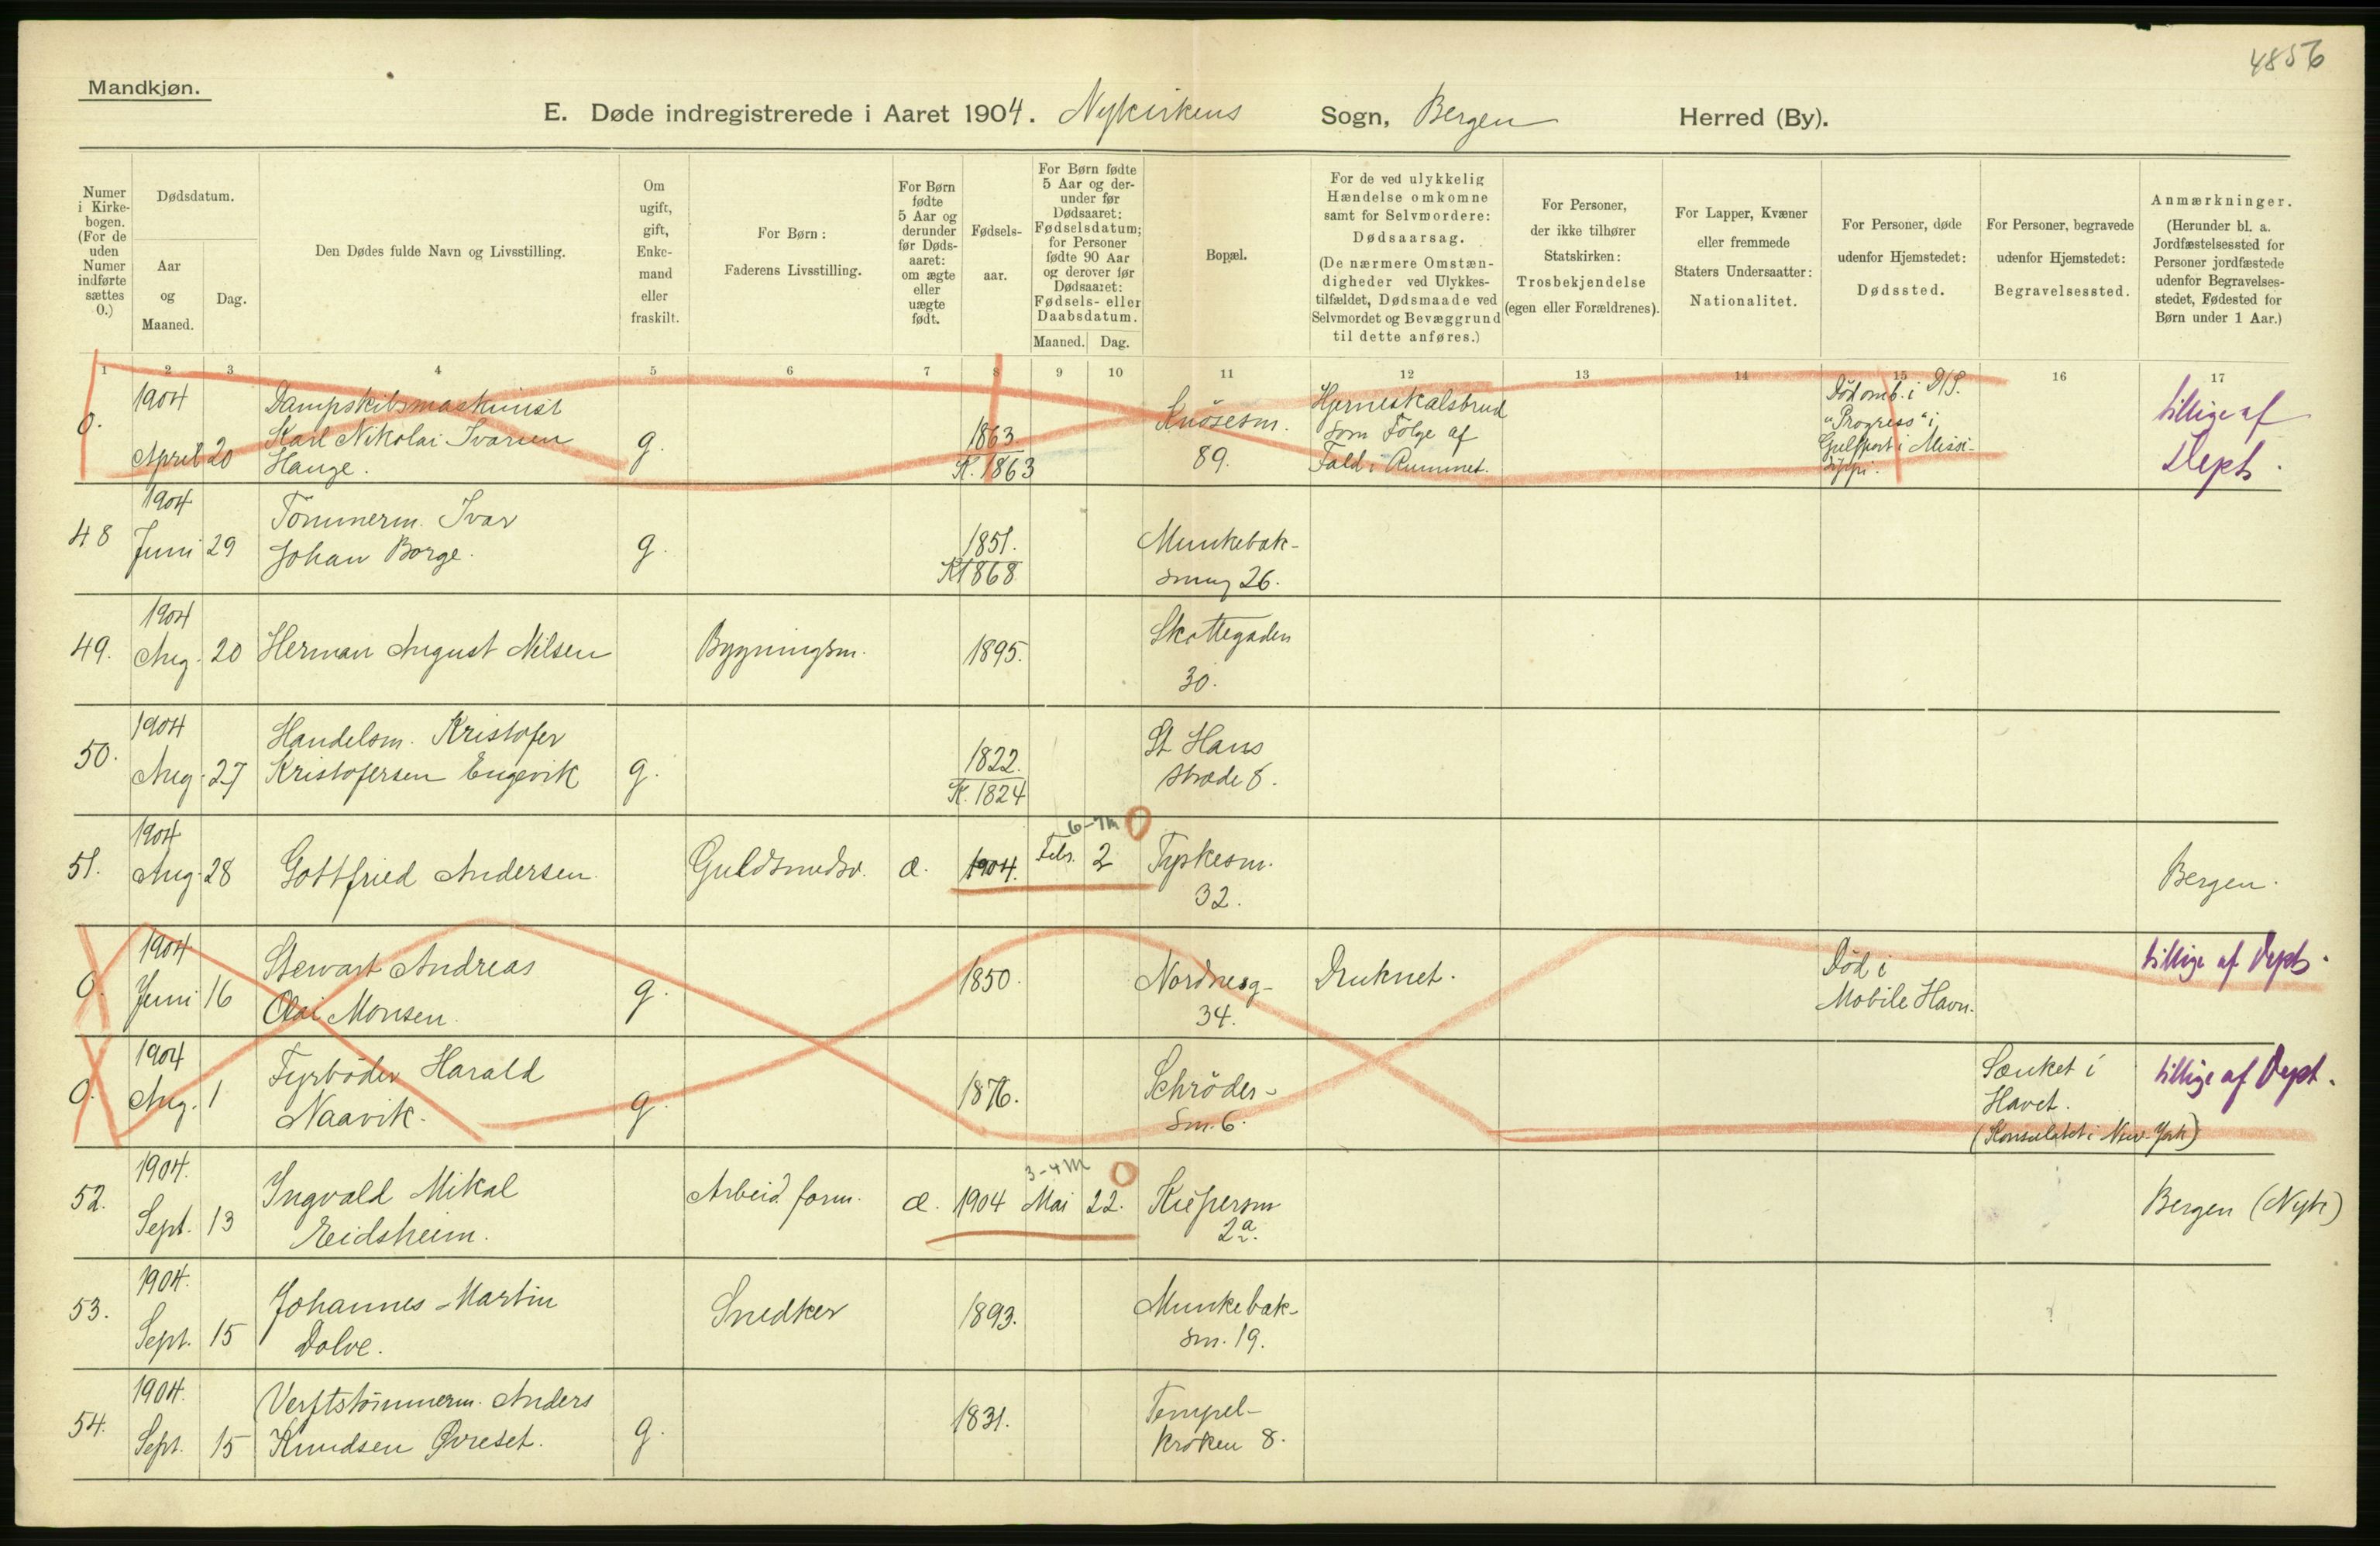 4856
Mandkjøn.
E. Døde indregistrerede i Aaret 1904. Nykirkens Sogn, Bergen Herred (By).
Numer i Kirke-bogen. (For de uden Numer indførte sættes 0.)
Dødsdatum.
Aar og Maaned.
Dag.
Den Dødes fulde Navn og Livsstilling.
Om ugift, gift, Enke-mand eller fraskilt.
For Børn: Faderens Livsstilling.
For Børn fødte 5 Aar og derunder før Døds-aaret: om ægte eller uægte født.
Fødsels-aar.
For Børn fødte 5 Aar og der-under før Dødsaaret: Fødselsdatum; for Personer fødte 90 Aar og derover før Dødsaaret: Fødsels- eller Daabsdatum.
Maaned. Dag.
Bopæl.
For de ved ulykkelig Hændelse omkomne samt for Selvmordere: Dødsaarsag. (De nærmere Omstæn-digheder ved Ulykkes-tilfældet, Dødsmaade ved Selvmordet og Bevæggrund til dette anføres.)
For Personer, der ikke tilhører Statskirken: Trosbekjendelse (egen eller Forældrenes).
For Lapper, Kvæner eller fremmede Staters Undersaatter: Nationalitet.
For Personer, døde udenfor Hjemstedet: Dødssted.
For Personer, begravede udenfor Hjemstedet: Begravelsessted.
Anmærkninger. (Herunder bl. a. Jordfæstelsessted for Personer jordfæstede udenfor Begravelses-stedet, Fødested for Børn under 1 Aar.)
1 2 3 4 5 6 7 8 9 10 11 12 13 14 15 16 17
0. 1904 April 20 Dampskibsmaskinist Karl Nikolai Ivarsen Hauge. g. 1863 K. 1863 Knøsesm. 89. Hjerneskalsbrud som Følge af Fald i Rummet. Död omb. i D/S. "Progress" i Gulfport i Missi-sippi. tillige af Dept.
48 1904 Juni 29 Tömmerm. Ivar Johan Borge. g. 1851. K1868 Munkebæk-smug 26.
49. 1904 Aug. 20 Herman August Nilsen Bygningsm. 1895. Skottegaden 30.
50. 1904 Aug. 27 Handelsm. Kristofer Kristofersen Engevik g. 1822. K. 1824 St Hans stræde 8.
51. 1904 Aug. 28 Gottfried Andersen. Guldsmedsv. æ. 1904. Febr. 2 6-7m Tyskesm. 32. Bergen.
0. 1904 Juni 16 Stewart Andreas Olai Monsen. g. 1850. Nordnesg- 34. Druknet. Död i Mobile Havn. tillige af Dept.
0. 1904 Aug. 1 Fyrböder Harald Naavik. g. 1876. Schröder-sm. 6. Sænket i Havet. (Konsulatet i New-York) tillige af Dept.
52. 1904. Sept. 13 Ingvald Mikal Eidsheim. Arbeid. form. æ. 1904 Mai 22. 3-4m Kiepersm 2a. Bergen (Nyk)
53. 1904. Sept. 15 Johannes Martin Dolve. Snedker 1893. Munkebæk-sm. 19.
54. 1904. Sept. 15 Verftstömmerm. Anders Knudsen Øvreset. g. 1831. Tempel-kroken 8.